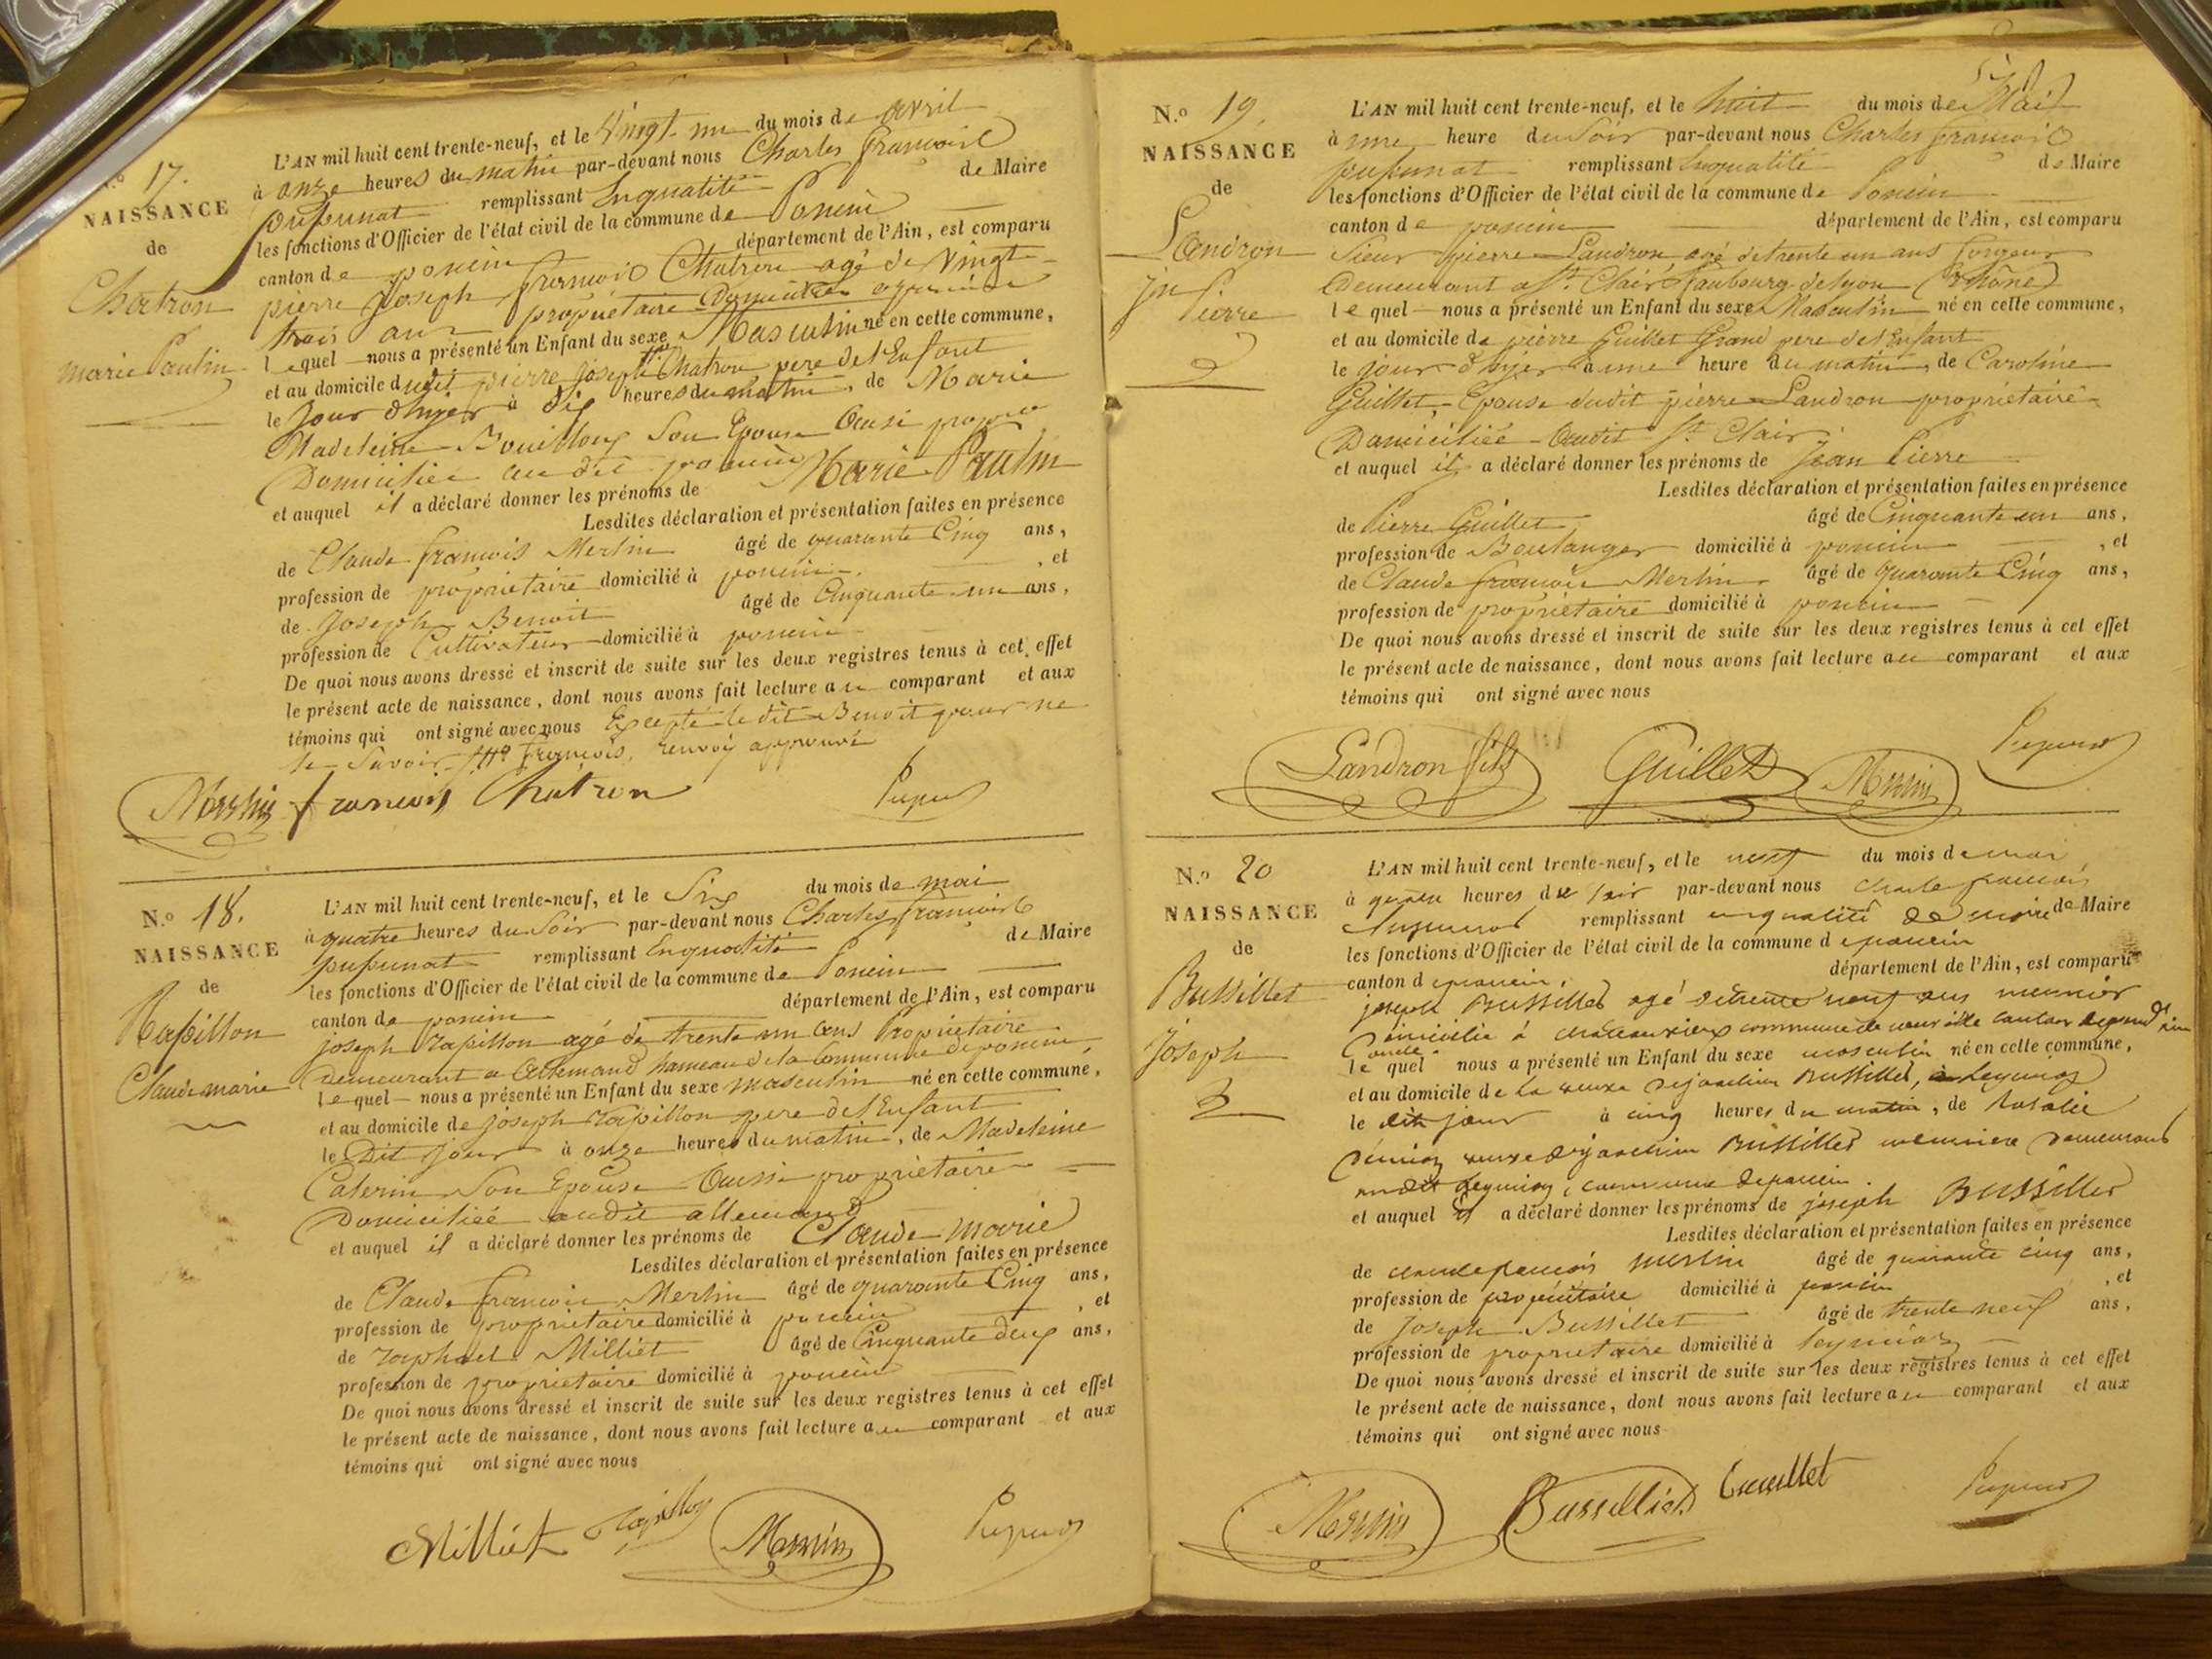 N.º 17.
NAISSANCE
de
Chatron
marie Paulin
L'AN mil huit cent trente-neuf, et le Vingt-un du mois de avril
à onze heures du matin par-devant nous Charles françois
pupunat remplissant En qualité de Maire
les fonctions d'Officier de l'état civil de la commune de Poncin
canton de poncin département de l'Ain, est comparu
pierre Joseph françois Chatron agé de Vingt-
trois ans propriétaire Domicilié a poncin
lequel nous a présenté un Enfant du sexe Masculin né en cette commune,
et au domicile dudit pierre joseph Chatron pere de l'Enfant
le Jour d'hyer à dix heures du matin, de Marie
Madeleine Bouilloux Son Epouse aussi propre
Domiciliée au dit poncin
et auquel il a déclaré donner les prénoms de Marie Paulin
Lesdites déclaration et présentation faites en présence
de Claude françois Merlin âgé de quarante Cinq ans,
profession de propriétaire domicilié à poncin, et
de Joseph Benoit âgé de Cinquante-un ans,
profession de Cultivateur domicilié à poncin
De quoi nous avons dressé et inscrit de suite sur les deux registres tenus à cet effet
le présent acte de naissance, dont nous avons fait lecture au comparant et aux
témoins qui ont signé avec nous Excepté le dit Benoit pour ne
le Savoir françois, renvoi approuvé
Merlin françois Chatron Pupunat
N.º 18.
NAISSANCE
de
Rapillon
Claude marie
L'AN mil huit cent trente-neuf, et le Six du mois de mai
à quatre heures du Soir par-devant nous Charles françois
pupunat remplissant En qualité de Maire
les fonctions d'Officier de l'état civil de la commune de Poncin
canton de poncin département de l'Ain, est comparu
joseph Rapillon agé de trente un ans Propriétaire
Demeurant a Allemand hameau de la Commune de poncin,
lequel nous a présenté un Enfant du sexe masculin né en cette commune,
et au domicile de joseph Rapillon pere de l'Enfant
le Dit jour à onze heures du matin, de Madeleine
Caterin Son Epouse aussi propriétaire
Domiciliée audit allemand
et auquel il a déclaré donner les prénoms de Claude marie
Lesdites déclaration et présentation faites en présence
de Claude françois Merlin âgé de quarante Cinq ans,
profession de propriétaire domicilié à poncin, et
de raphael Milliet âgé de Cinquante deux ans,
profession de propriétaire domicilié à poncin
De quoi nous avons dressé et inscrit de suite sur les deux registres tenus à cet effet
le présent acte de naissance, dont nous avons fait lecture au comparant et aux
témoins qui ont signé avec nous
Milliet Rapillon Merlin Pupunat
N.º 19.
NAISSANCE
de
Landron
Jn Pierre
L'AN mil huit cent trente-neuf, et le huit du mois de Mai
à une heure du Soir par-devant nous Charles françois
pupunat remplissant En qualité de Maire
les fonctions d'Officier de l'état civil de la commune de Poncin
canton de poncin département de l'Ain, est comparu
Sieur pierre Landron, agé de trente un ans forgeur
Demeurant a St. Clair faubourg de lyon (Rhône)
lequel nous a présenté un Enfant du sexe Masculin né en cette commune,
et au domicile de pierre Guillet Grand pere de l'Enfant
le jour d'hyer à une heure du matin, de Caroline
Guillet, Epouse dudit pierre Landron propriétaire
Domiciliée audit St. Clair
et auquel il a déclaré donner les prénoms de Jean Pierre
Lesdites déclaration et présentation faites en présence
de Pierre Guillet âgé de Cinquante un ans,
profession de Boulanger domicilié à poncin, et
de Claude françois Merlin âgé de quarante Cinq ans,
profession de propriétaire domicilié à poncin
De quoi nous avons dressé et inscrit de suite sur les deux registres tenus à cet effet
le présent acte de naissance, dont nous avons fait lecture au comparant et aux
témoins qui ont signé avec nous
Landron fils Guillet Merlin Pupunat
N.º 20
NAISSANCE
de
Bussillet
Joseph
L'AN mil huit cent trente-neuf, et le neuf du mois de mai
à quatre heures du soir par-devant nous Charle françois
pupunat remplissant en qualité de maire de Maire
les fonctions d'Officier de l'état civil de la commune de poncin
canton de poncin, département de l'Ain, est comparu
joseph Bussillet agé de trente neuf ans meunier
Domicilié à chateauvieux commune de neuville canton
oncle
lequel nous a présenté un Enfant du sexe masculin né en cette commune,
et au domicile de la veuve de joachim Bussillet, à Leymiaz
le dit jour à cinq heures du matin, de Rosalie
veuve de joachim Bussillet meuniere demeurant
audit Leymiaz, commune de poncin.
et auquel il a déclaré donner les prénoms de joseph Bussillet
Lesdites déclaration et présentation faites en présence
de claude francois merlin âgé de quarante cinq ans,
profession de propriétaire domicilié à poncin, et
de Joseph Bussillet âgé de trente neuf ans,
profession de propriétaire domicilié à leymiaz
De quoi nous avons dressé et inscrit de suite sur les deux registres tenus à cet effet
le présent acte de naissance, dont nous avons fait lecture au comparant et aux
témoins qui ont signé avec nous
Merlin Bussilliet Pupunat